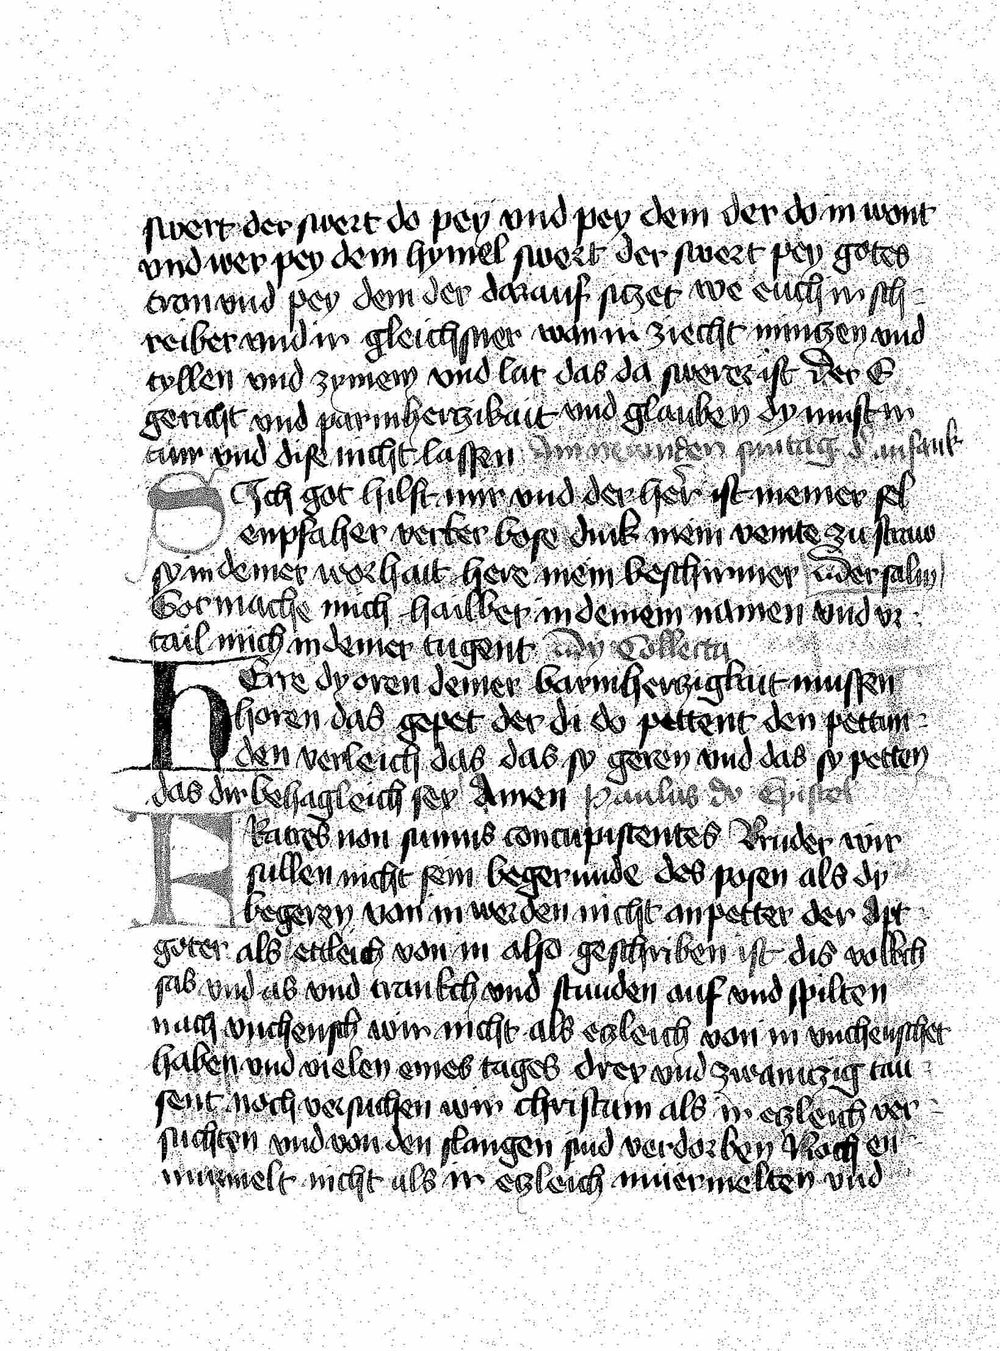 swert der swert do pey vnd pey dem der do in wont
vnd wer pey dem hymel swert der swert pey gotes
tron vnd pey dem der darauf siczet we euch ir sch
reiber vnd ir gleichsner wan ir ziecht minczen vnd
tyllen vnd zymein vnd lat das da swerer ist der E
gericht vnd parmherczikait vnd glauben dy must ir
tun vnd dise nicht lassen suntag anfank
SJch got hilft mir vnd der her ist meiner sel
enpfaher verker bose dink mein veinte zu straw
sy in deiner worhait here mein beschirmer der salm
Got mache mich hailber in deinem namen vnd vr
tail mich in deiner tugent dy Collecta
HErre dy oren deiner barmherczigkait mussen
horen das gepet der di do pettent den pettun
den verleich das das sy geren vnd das sy petten
das dir behagleich sey Amen paulus dy Epistel
FRatres non simus concupiscentes Bruder wir
sullen nicht sein begerunde des posen als dy
begeren von in werden nicht anpetter der Apt
goter als ettleich von in also geschriben ist dis volkch
sas vnd as vnd trankch vnd stunden auf vnd spilten
nach vnchewsch wir nicht als eczleich von in vnchewschet
haben vnd vielen eines tages drey vnd zwainczig tau
sent noch versuchen wir christum als ir eczleich ver
suchten vnd von den slangen sind verdorben Noch en
murmelt nicht als ir eczleich murmelten vnd